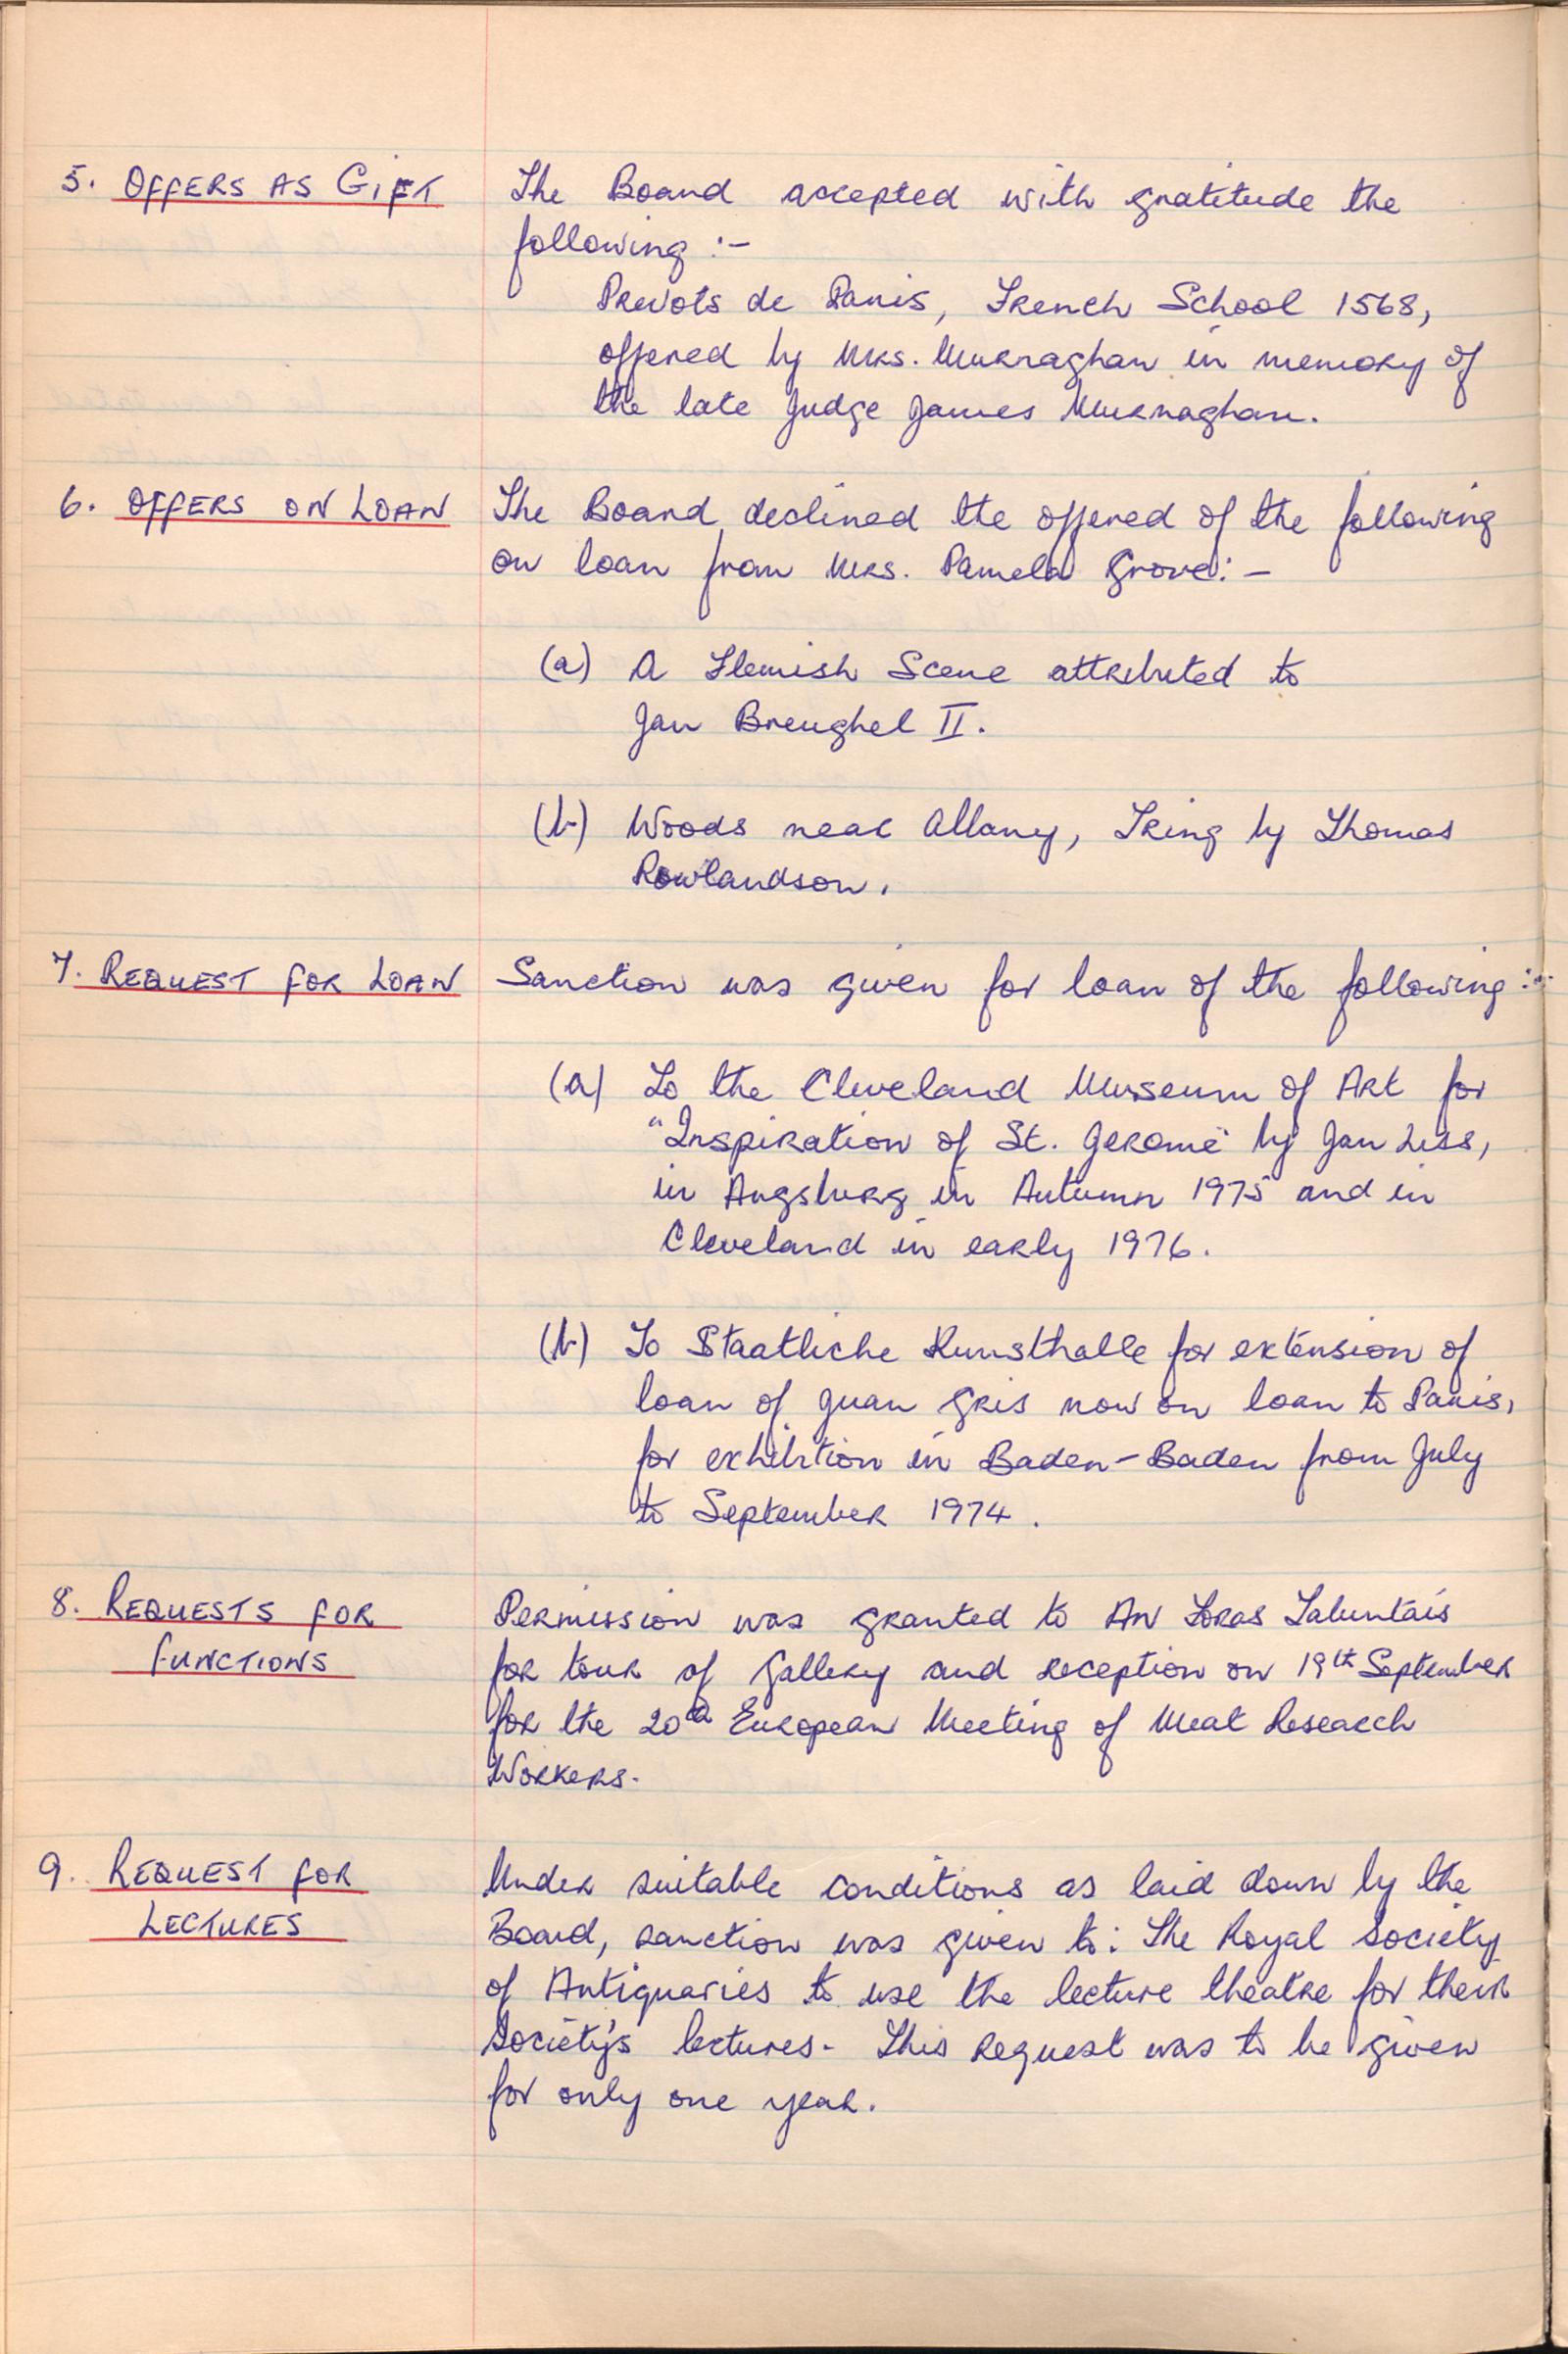 5. OFFERS AS GIFT
The Board accepted with gratitude the
following :-
Prevots de Paris, French School 1568,
offered by Mrs. Murnaghan in memory of
the late Judge James Murnaghan.
6. OFFERS ON LOAN
The Board declined the offered of the following
on loan from Mrs. Pamela Grove:-
(a) A Flemish Scene attributed to
Jan Breughel II.
(b) Woods near Albany, Tring by Thomas
Rowlandson.
7. REQUEST FOR LOAN
Sanction was given for loan of the following :-
(a) To the Cleveland Museum of Art for
"Inspiration of St. Jerome" by Jan Liss,
in Augsburg in Autumn 1975 and in
Cleveland in early 1976.
(b) To Staatliche Kunsthalle for extension of
loan of Juan Gris now on loan to Paris,
for exhibition in Baden-Baden from July
to September 1974.
8. REQUESTS FOR
FUNCTIONS
Permission was granted to An Foras Taluntais
for tour of Gallery and reception on 19th September
for the 20th European Meeting of Meat Research
Workers.
9. REQUEST FOR
LECTURES
Under suitable conditions as laid down by the
Board, sanction was given to: The Royal Society
of Antiquaries to use the lecture theatre for their
Society's lectures. This request was to be given
for only one year.